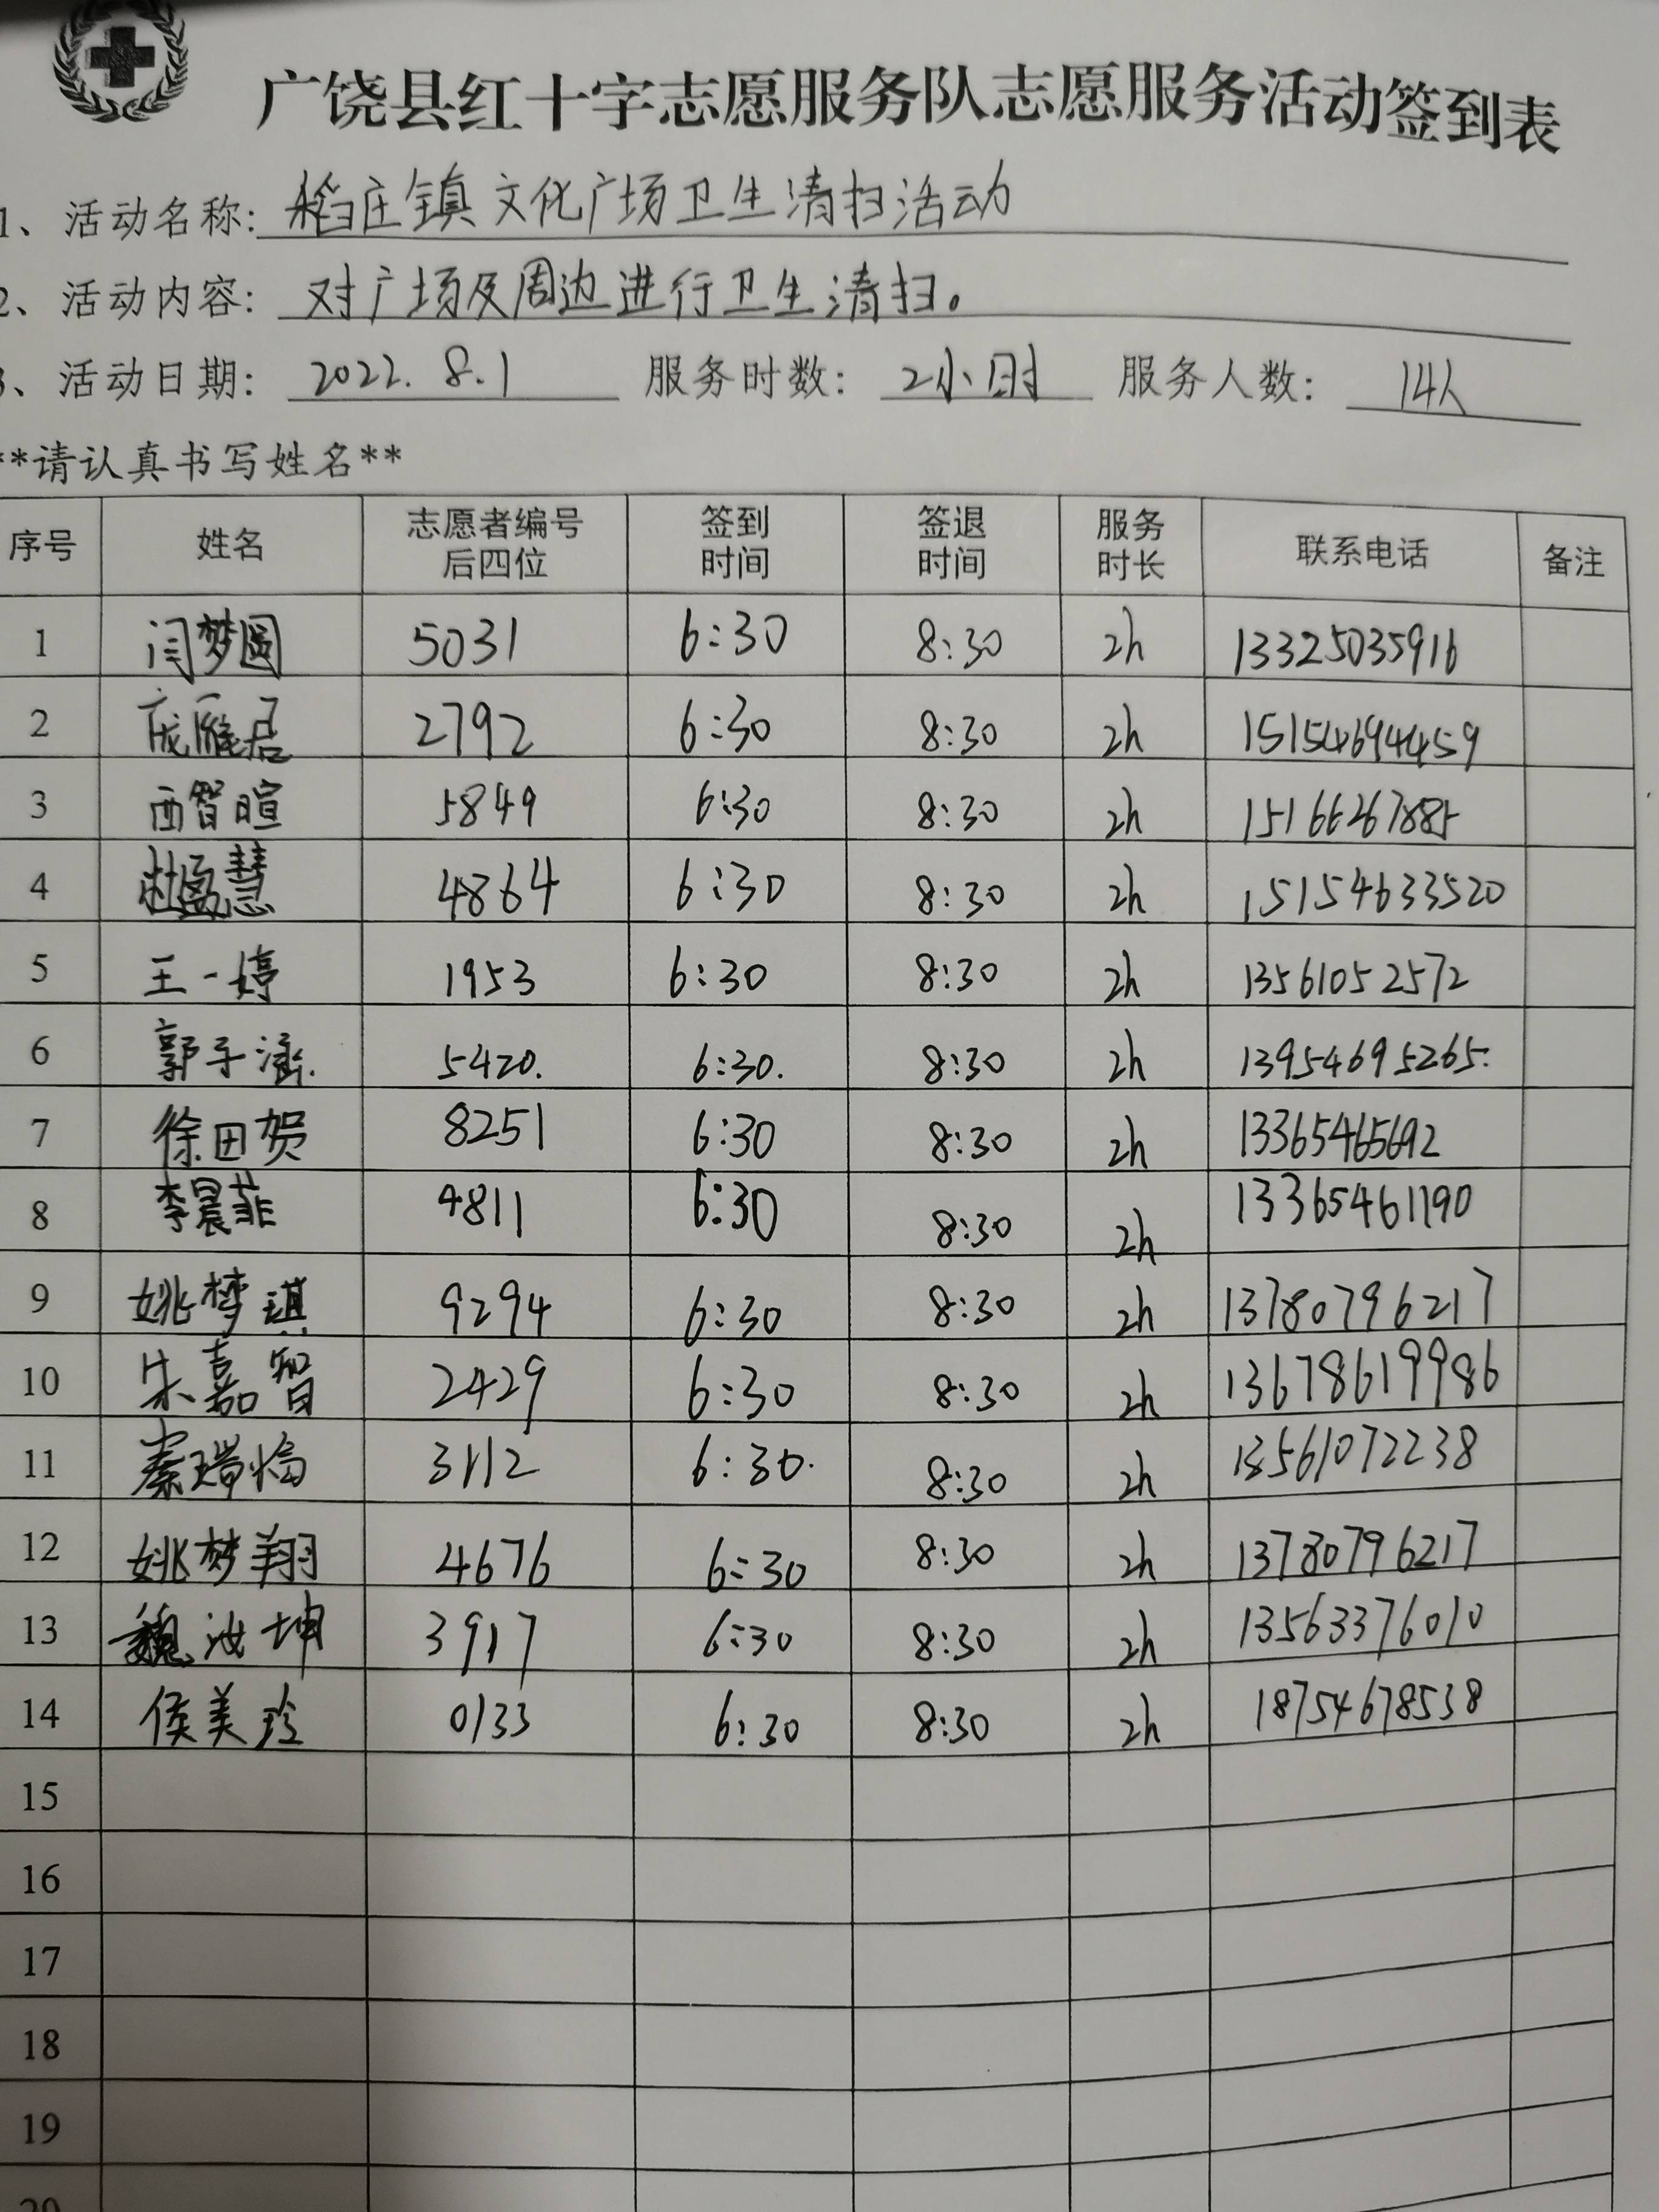 广饶县红十字志愿服务队志愿服务活动签到表
1、活动名称: 稻庄镇文化广场卫生清扫活动
2、活动内容: 对广场及周边进行卫生清扫。
3、活动日期: 2022.8.1 服务时数: 2小时 服务人数: 14人
**请认真书写姓名**
序号 姓名 志愿者编号后四位 签到时间 签退时间 服务时长 联系电话 备注
1 闫梦圆 5031 6:30 8:30 2h 13325035916
2 庞雁居 2792 6:30 8:30 2h 15154694459
3 西智暄 5849 6:30 8:30 2h 15166267885
4 杜盈慧 4864 6:30 8:30 2h 15154633520
5 王一婷 1953 6:30 8:30 2h 13561052572
6 郭子涵. 5420. 6:30. 8:30 2h 13954695265.
7 徐田贺 8251 6:30 8:30 2h 13365465692
8 李晨菲 4811 6:30 8:30 2h 13365461190
9 姚梦琪 9294 6:30 8:30 2h 13780796217
10 朱嘉智 2429 6:30 8:30 2h 13678619986
11 秦瑞 3112 6:30. 8:30 2h 13561072238
12 姚梦翔 4676 6:30 8:30 2h 13780796217
13 魏汝坤 3917 6:30 8:30 2h 13563376010
14 侯美玲 0133 6:30 8:30 2h 18754678538
15
16
17
18
19
20